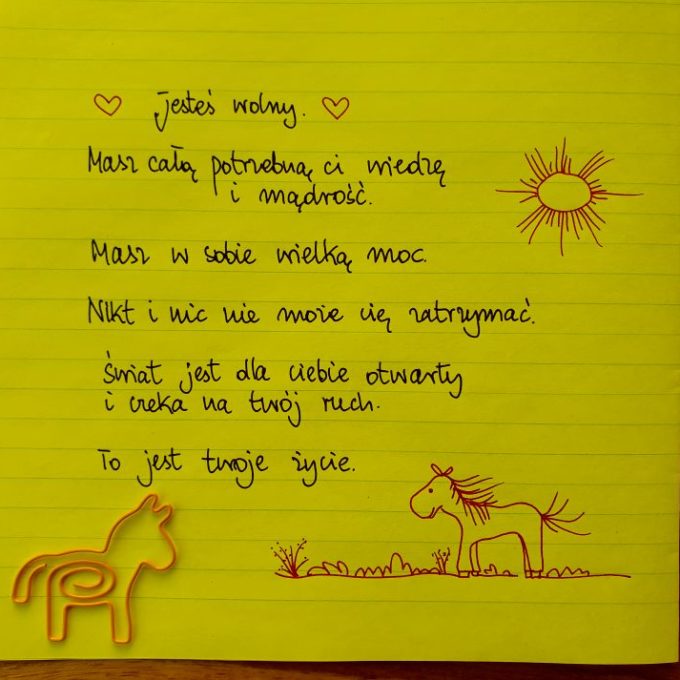 Jesteś wolny.
Masz całą potrzebną ci wiedzę
i mądrość.
Masz w sobie wielką moc.
Nikt i nic nie może cię zatrzymać.
Świat jest dla ciebie otwarty
i czeka na twój ruch.
To jest twoje życie.